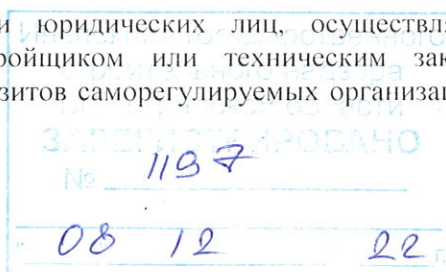 и юридических лиц, осуществл
ройщиком или техническим зак
зитов саморегулируемых организац
ЗАРЕГИСТРИРОВАНО
№ 1197
08 12 22 г